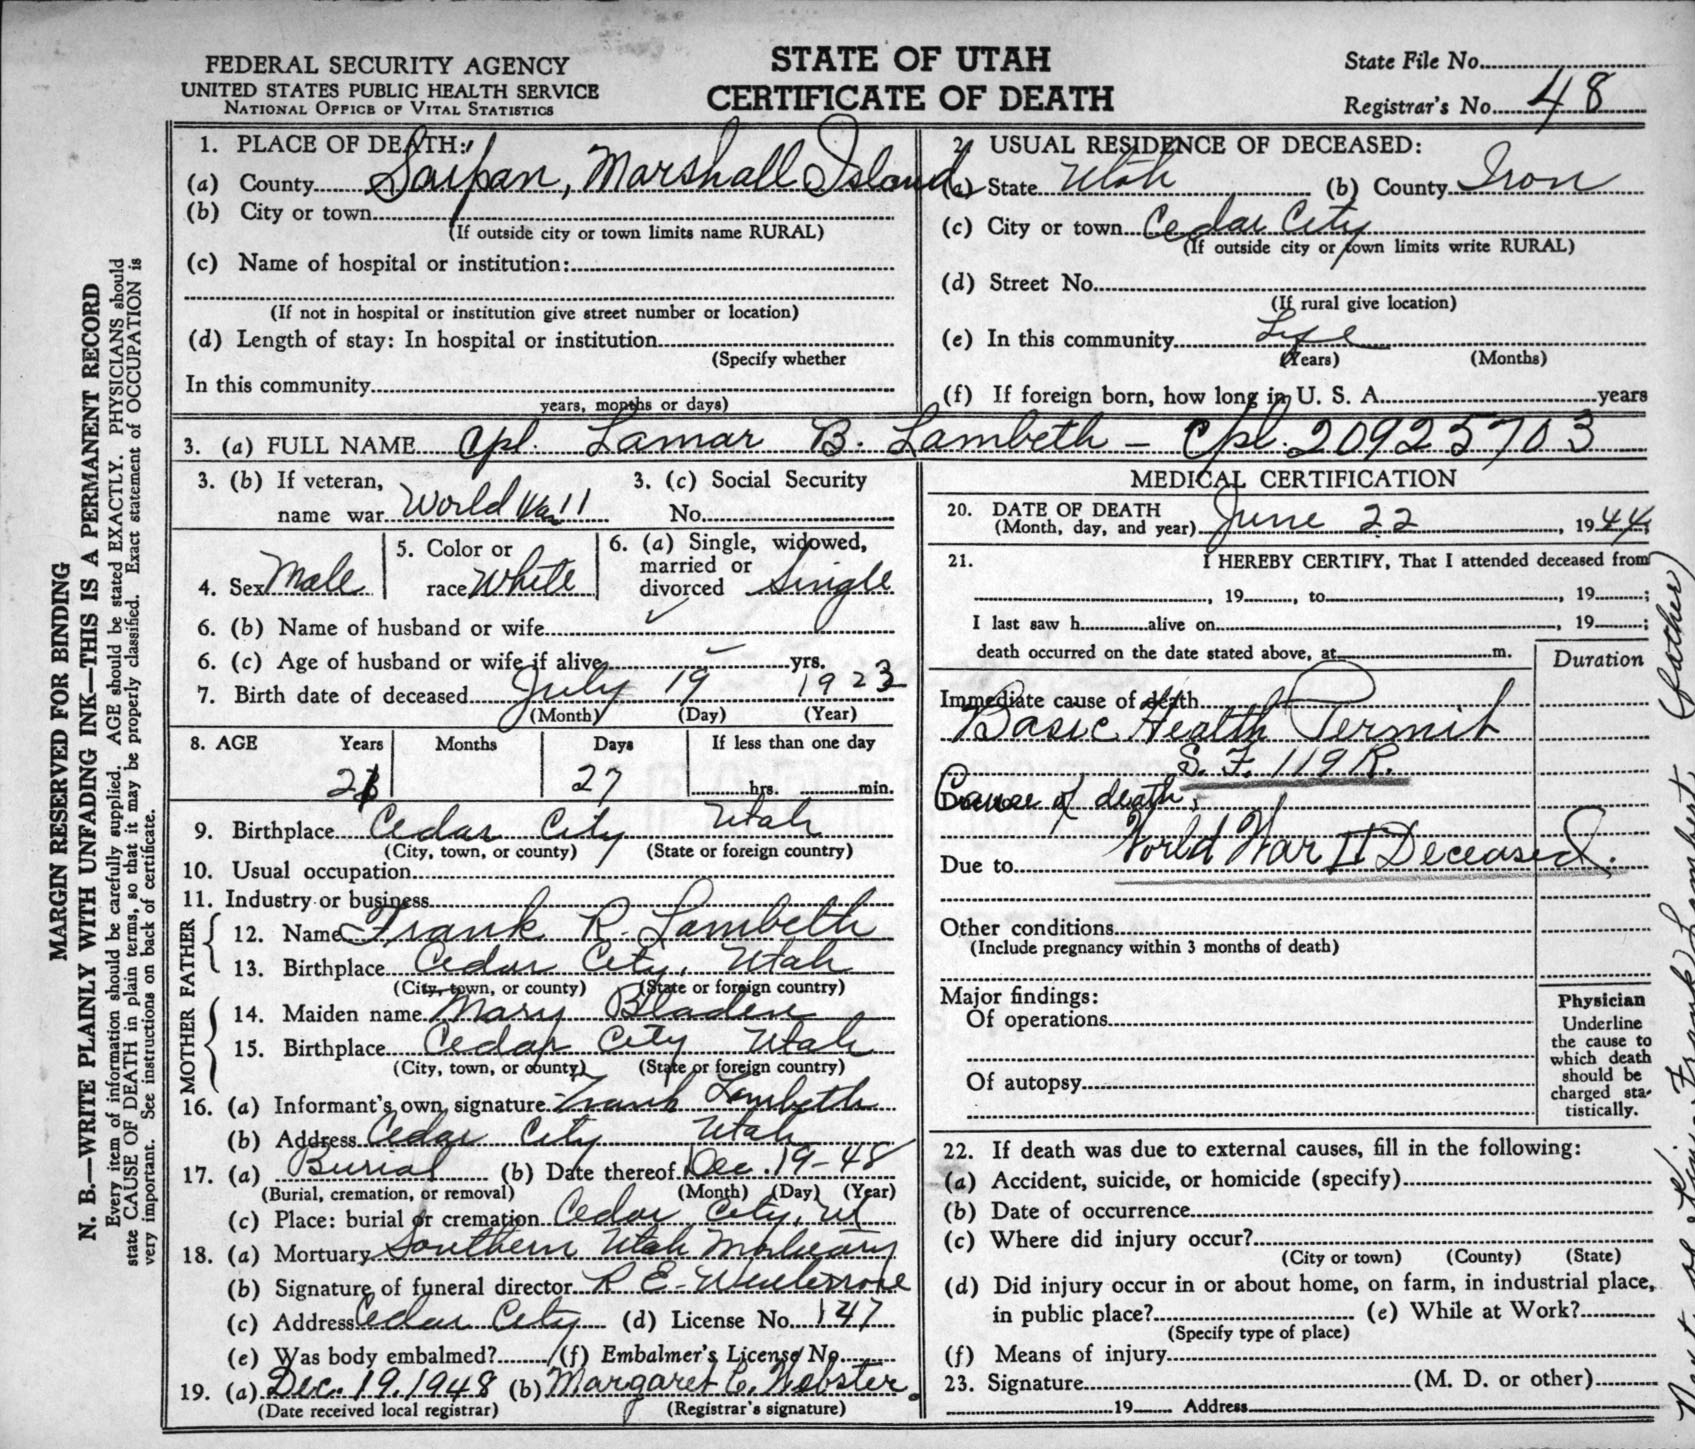 FEDERAL SECURITY AGENCY
UNITED STATES PUBLIC HEALTH SERVICE
NATIONAL OFFICE OF VITAL STATISTICS
STATE OF UTAH
CERTIFICATE OF DEATH
State File No.
Registrar's No. 48
MARGIN RESERVED FOR BINDING
N. B.—WRITE PLAINLY WITH UNFADING INK—THIS IS A PERMANENT RECORD
Every item of information should be carefully supplied. AGE should be stated EXACTLY. PHYSICIANS should
state CAUSE OF DEATH in plain terms, so that it may be properly classified. Exact statement of OCCUPATION is
very important. See instructions on back of certificate.
1. PLACE OF DEATH:
(a) County Saipan, Marshall Island
(b) City or town
(If outside city or town limits name RURAL)
(c) Name of hospital or institution:
(If not in hospital or institution give street number or location)
(d) Length of stay: In hospital or institution
(Specify whether
In this community
years, months or days)
2. USUAL RESIDENCE OF DECEASED:
(a) State Utah (b) County Iron
(c) City or town Cedar City
(If outside city or town limits write RURAL)
(d) Street No.
(If rural give location)
(e) In this community Life
(Years) (Months)
(f) If foreign born, how long in U. S. A. years
3. (a) FULL NAME Cpl. Lamar B. Lambeth - Cpl. 20925703
3. (b) If veteran,
name war World War II
3. (c) Social Security
No.
4. Sex Male
5. Color or
race White
6. (a) Single, widowed,
married or
divorced Single
6. (b) Name of husband or wife
6. (c) Age of husband or wife if alive yrs.
7. Birth date of deceased July 19 1923
(Month) (Day) (Year)
8. AGE Years Months Days If less than one day
27 hrs. min.
9. Birthplace Cedar City Utah
(City, town, or county) (State or foreign country)
10. Usual occupation
11. Industry or business
FATHER
12. Name Frank R. Lambeth
13. Birthplace Cedar City, Utah
(City, town, or county) (State or foreign country)
MOTHER
14. Maiden name Mary Bladen
15. Birthplace Cedar City Utah
(City, town, or county) (State or foreign country)
16. (a) Informant's own signature Frank Lambeth
(b) Address Cedar City Utah
17. (a) Burial (b) Date thereof Dec. 19-48
(Burial, cremation, or removal) (Month) (Day) (Year)
(c) Place: burial or cremation Cedar City, Ut
18. (a) Mortuary Southern Utah Mortuary
(b) Signature of funeral director R E
(c) Address Cedar City (d) License No. 147
(e) Was body embalmed? (f) Embalmer's License No.
19. (a) Dec. 19, 1948 (b) Margaret C. Webster.
(Date received local registrar) (Registrar's signature)
MEDICAL CERTIFICATION
20. DATE OF DEATH
(Month, day, and year) June 22, 1944
21. I HEREBY CERTIFY, That I attended deceased from
, 19 , to , 19 ;
I last saw h alive on , 19 ;
death occurred on the date stated above, at m.
Duration
Immediate cause of death
Basic Health Permit
S. F. 119 R.
Cause of death,
Due to World War II Deceased.
Other conditions
(Include pregnancy within 3 months of death)
Major findings:
Of operations
Of autopsy
Physician
Underline
the cause to
which death
should be
charged sta-
tistically.
22. If death was due to external causes, fill in the following:
(a) Accident, suicide, or homicide (specify)
(b) Date of occurrence
(c) Where did injury occur?
(City or town) (County) (State)
(d) Did injury occur in or about home, on farm, in industrial place,
in public place? (e) While at Work?
(Specify type of place)
(f) Means of injury
23. Signature (M. D. or other)
19 Address
Next of Kin: Frank Lambert (father)